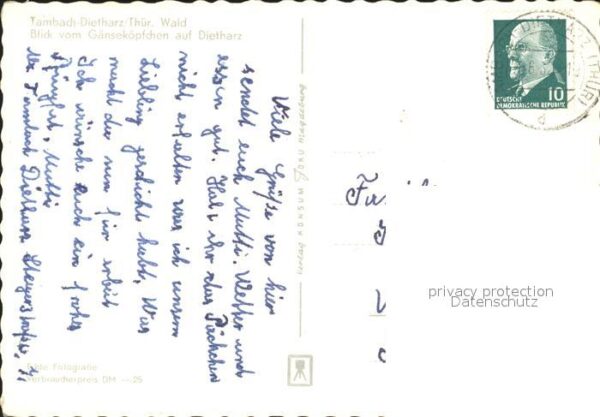 Tambach-Dietharz/Thür. Wald
Blick vom Gänseköpfchen auf Dietharz
Viele Grüße von hier
sendet euch Mutti. Wetter und
essen gut. Habt ihr das Päckchen
nicht erhalten was ich unserm
Liebling geschickt habt, Was
macht du nun für arbeit
Ich wünsche Euch ein frohes
Mutti
Tambach Dietharz
Echte Fotografie
Verbraucherpreis DM —.25
10
DEUTSCHE
DEMOKRATISCHE REPUBLIK
DIETHARZ (THÜR)
d
privacy protection
Datenschutz